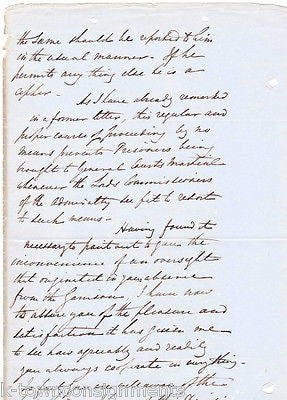 the same should be reported to him
in the usual manner. If he
permits any thing else he is a
cypher.
As I have already remarked
in a former letter, this regular and
proper course of proceeding by no
means prevents Prisoners being
brought to General Courts Martial
whenever the Lords Commissioners
of the Admiralty see fit to resort
to such means.
Having found it
necessary to point out to you the
inconvenience of an oversight
that originated in your absence
from the Garrison, I have now
to assure you of the pleasure and
satisfaction it has given me
to see how agreeably and readily
you always cooperate in everything
of the
k-townconsignments